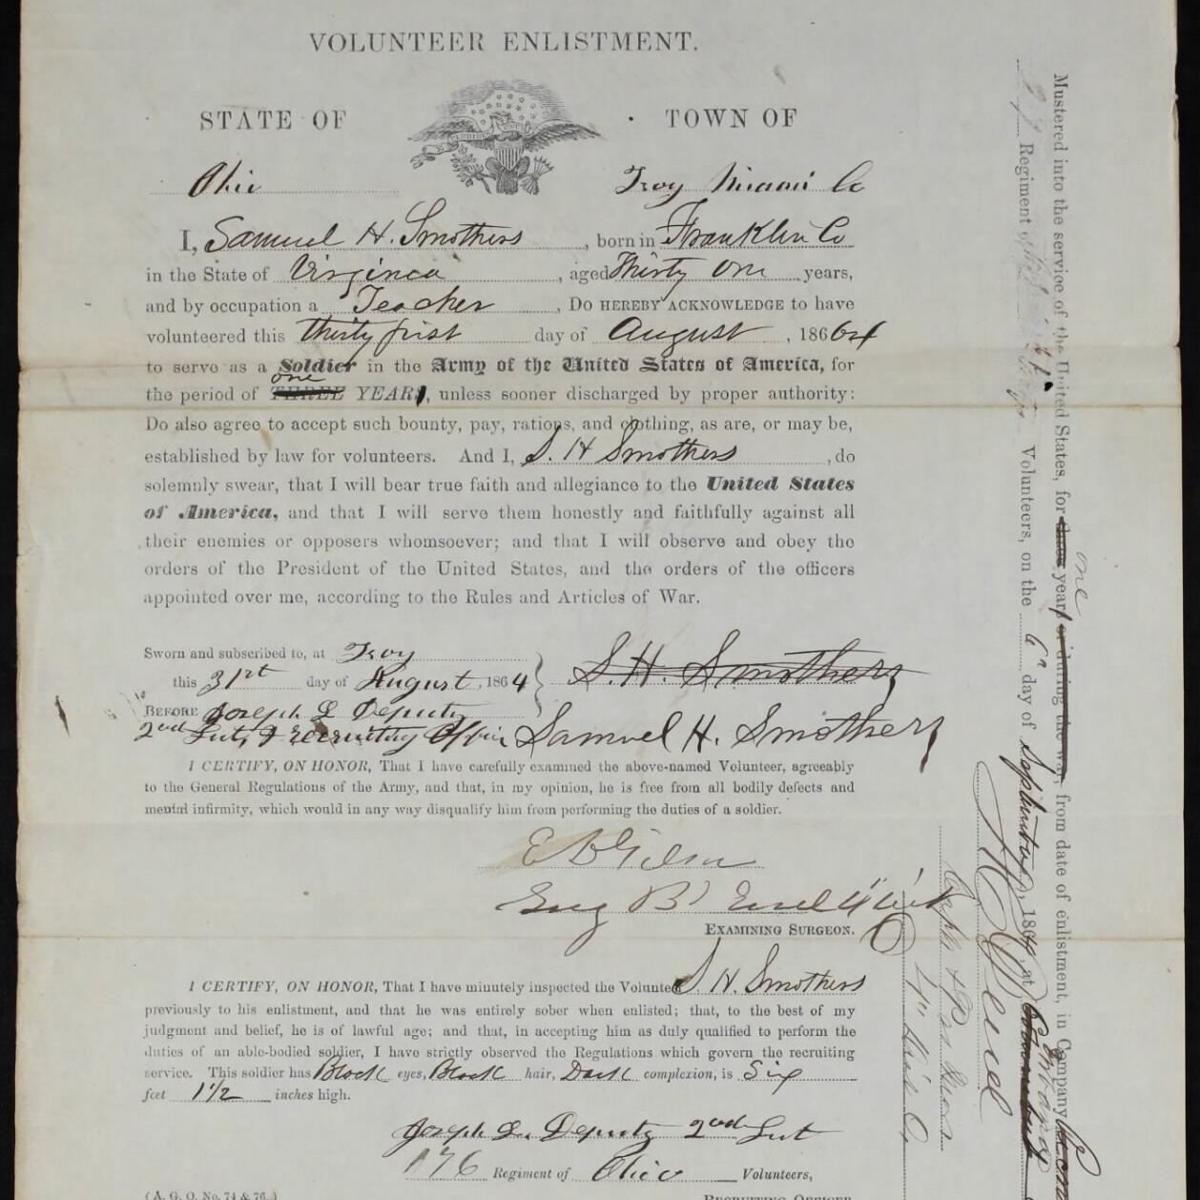 VOLUNTEER ENLISTMENT.
STATE OF TOWN OF
Ohio Troy Miami Co
I, Samuel H. Smothers, born in Franklin Co
in the State of Virginea, aged Thirty One years,
and by occupation a Teacher, DO HEREBY ACKNOWLEDGE to have
volunteered this thirty first day of August, 18664
to serve as a Soldier in the Army of the United States of America, for
one
the period of THREE YEARS, unless sooner discharged by proper authority:
Do also agree to accept such bounty, pay, rations, and clothing, as are, or may be,
established by law for volunteers. And I, S. H Smothers, do
solemnly swear, that I will bear true faith and allegiance to the United States
of America, and that I will serve them honestly and faithfully against all
their enemies or opposers whomsoever; and that I will observe and obey the
orders of the President of the United States, and the orders of the officers
appointed over me, according to the Rules and Articles of War.
Sworn and subscribed to, at Troy
this 31st day of August, 1864 S. H. Smothers
BEFORE Joseph L Deputy
2nd Lut, & recruiting Officer Samuel H. Smothers
I CERTIFY, ON HONOR, That I have carefully examined the above-named Volunteer, agreeably
to the General Regulations of the Army, and that, in my opinion, he is free from all bodily defects and
mental infirmity, which would in any way disqualify him from performing the duties of a soldier.
Surg B
EXAMINING SURGEON.
I CERTIFY, ON HONOR, That I have minutely inspected the Volunteer S. H. Smothers
previously to his enlistment, and that he was entirely sober when enlisted; that, to the best of my
judgment and belief, he is of lawful age; and that, in accepting him as duly qualified to perform the
duties of an able-bodied soldier, I have strictly observed the Regulations which govern the recruiting
service. This soldier has Black eyes, Black hair, Dark complexion, is Six
feet 1 1/2 inches high.
Joseph L. Deputy 2nd Lut
176 Regiment of Ohio Volunteers,
(A. G. O. No. 74 & 76.) RECRUITING OFFICER
one
Mustered into the service of the United States, for three years or during the war, from date of enlistment, in Company
Regiment of Volunteers, on the 6th day of September, 1864, at